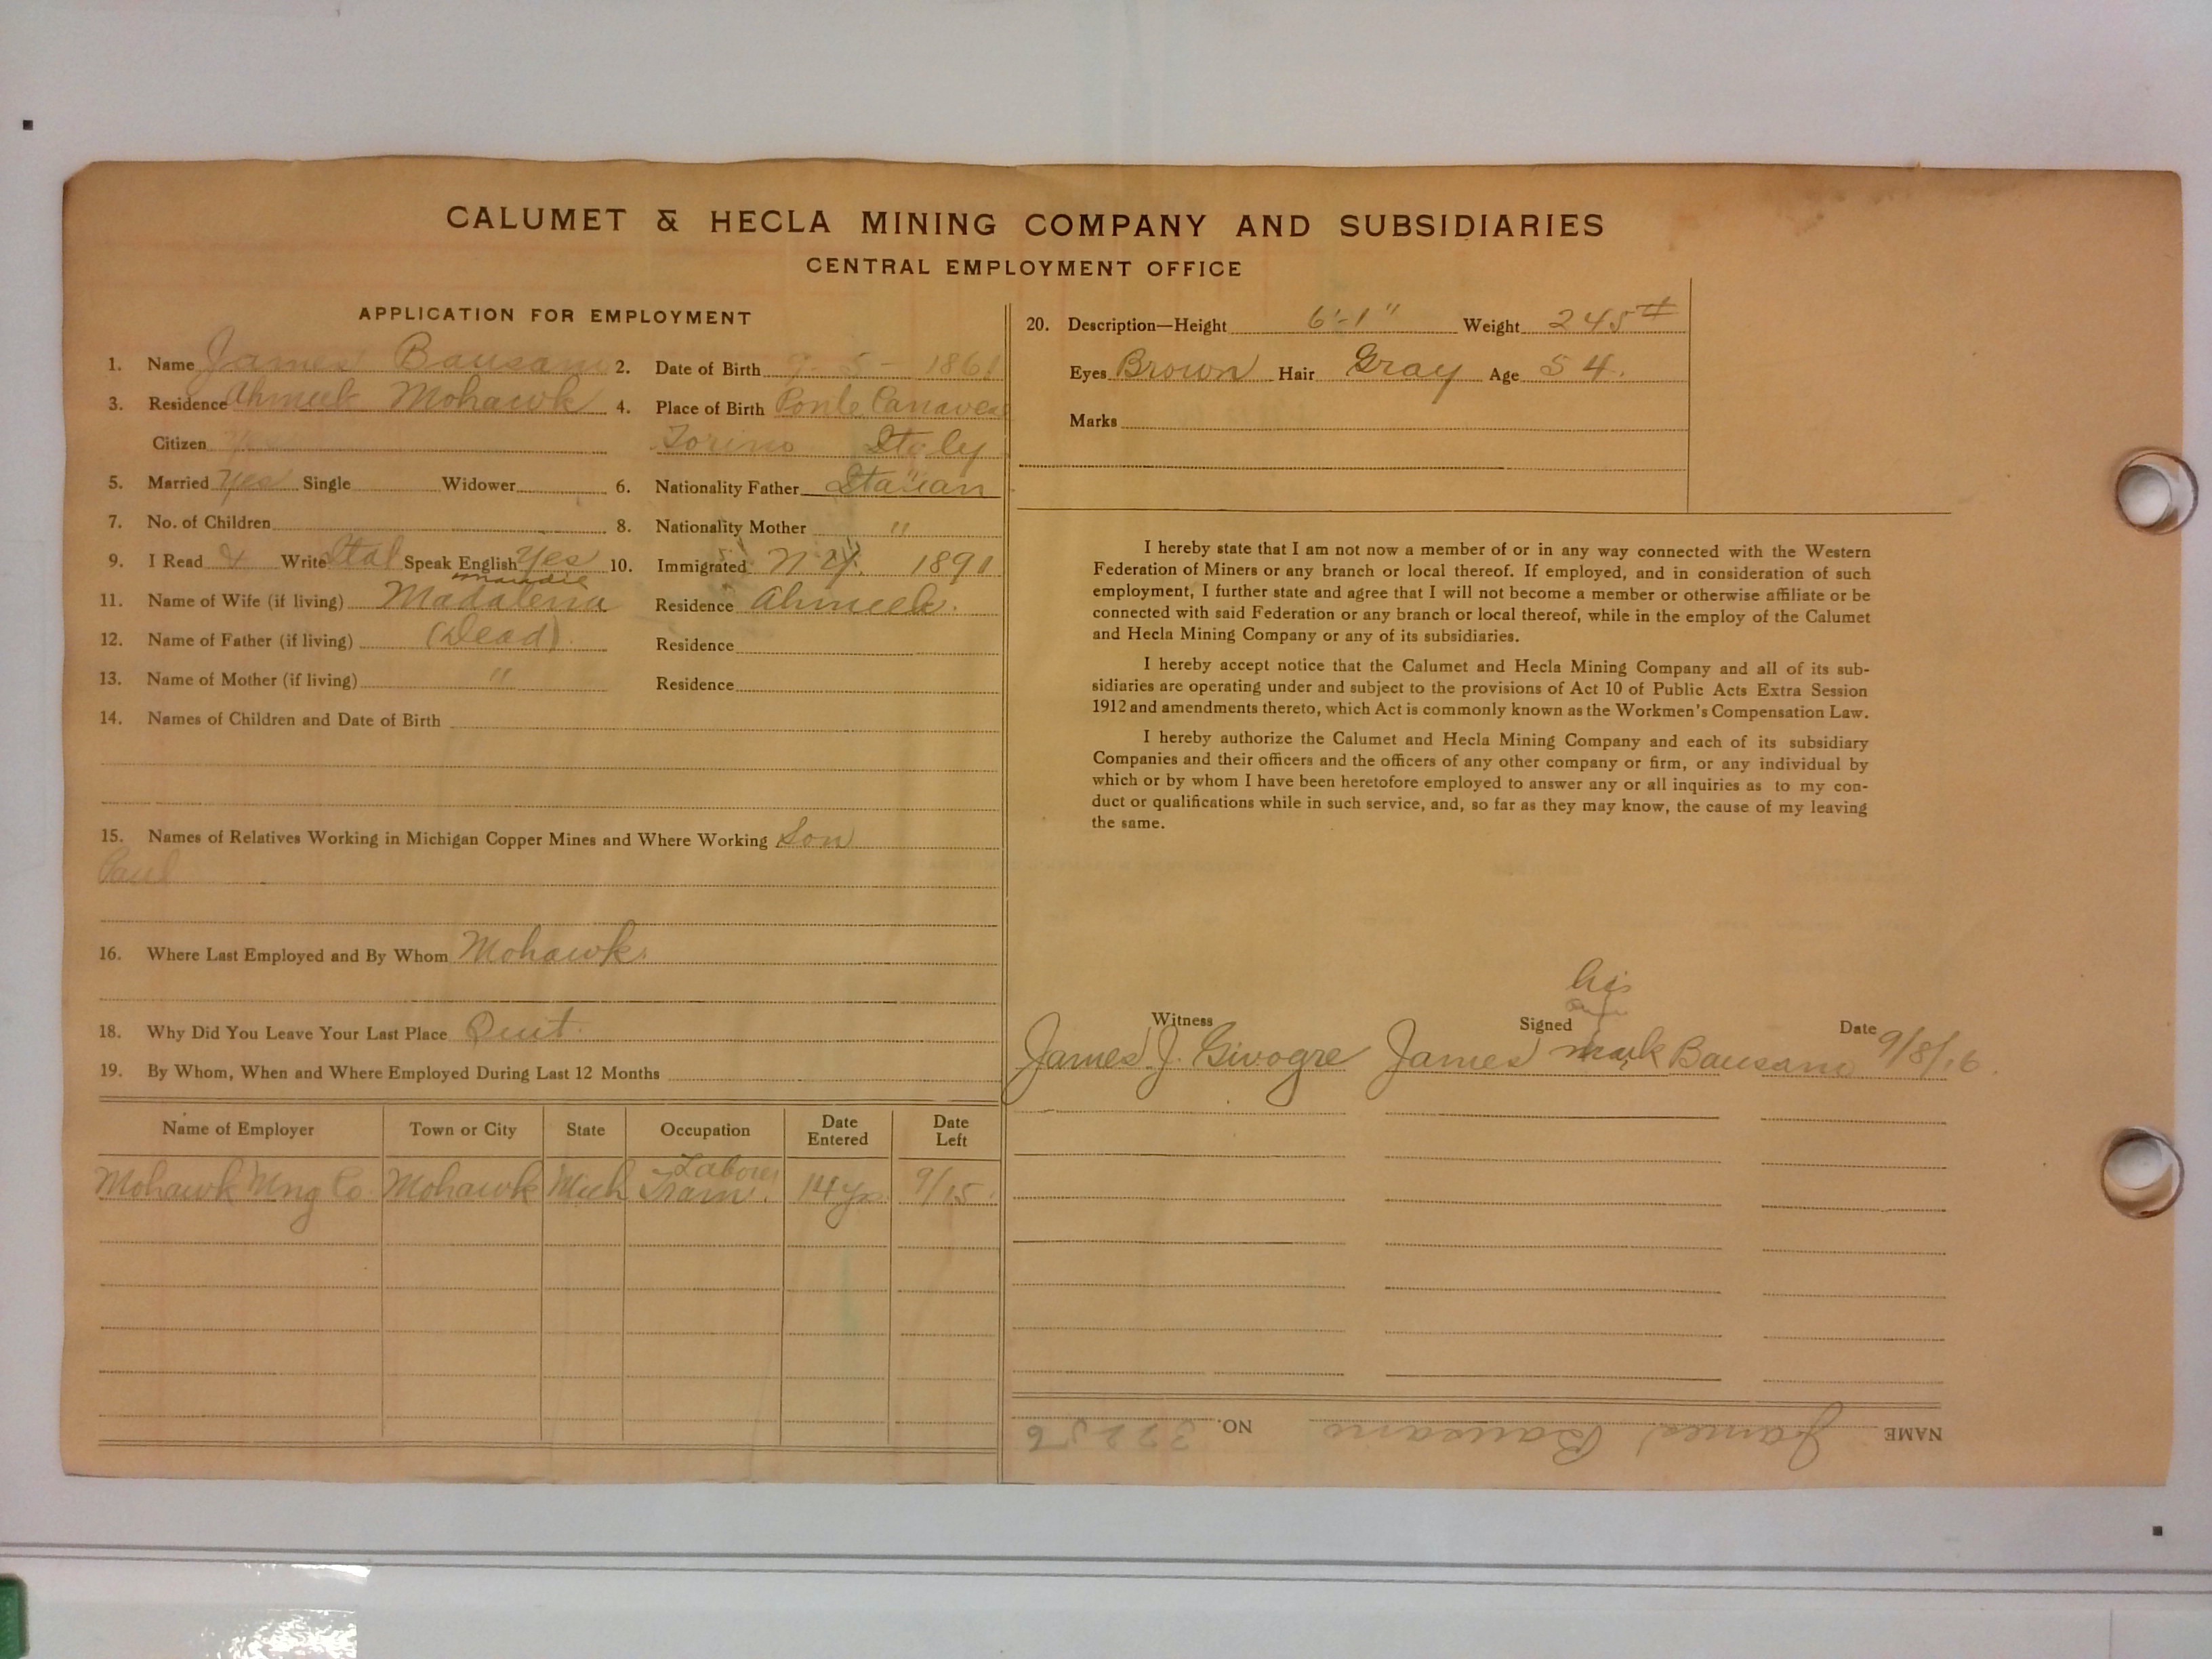 CALUMET & HECLA MINING COMPANY AND SUBSIDIARIES
CENTRAL EMPLOYMENT OFFICE
APPLICATION FOR EMPLOYMENT
1. Name James Bausano 2. Date of Birth 9-5-1861
3. Residence Ahmeek Mohawk 4. Place of Birth Ponte Canavese
Citizen Torino Italy
5. Married Yes Single Widower 6. Nationality Father Italian
7. No. of Children 8. Nationality Mother "
9. I Read & Write Ital Speak English Yes 10. Immigrated N.Y. 1891
11. Name of Wife (if living) Madalena Residence Ahmeek.
12. Name of Father (if living) (Dead) Residence
13. Name of Mother (if living) " Residence
14. Names of Children and Date of Birth
15. Names of Relatives Working in Michigan Copper Mines and Where Working Son
Paul
16. Where Last Employed and By Whom Mohawk.
18. Why Did You Leave Your Last Place Quit.
19. By Whom, When and Where Employed During Last 12 Months
Name of Employer Town or City State Occupation Date Entered Date Left
Labour
Mohawk Mng Co Mohawk Mich Tram. 14 yrs 9/15.
20. Description—Height 6'-1" Weight 245#
Eyes Brown Hair Gray Age 54.
Marks
I hereby state that I am not now a member of or in any way connected with the Western
Federation of Miners or any branch or local thereof. If employed, and in consideration of such
employment, I further state and agree that I will not become a member or otherwise affiliate or be
connected with said Federation or any branch or local thereof, while in the employ of the Calumet
and Hecla Mining Company or any of its subsidiaries.
I hereby accept notice that the Calumet and Hecla Mining Company and all of its sub-
sidiaries are operating under and subject to the provisions of Act 10 of Public Acts Extra Session
1912 and amendments thereto, which Act is commonly known as the Workmen's Compensation Law.
I hereby authorize the Calumet and Hecla Mining Company and each of its subsidiary
Companies and their officers and the officers of any other company or firm, or any individual by
which or by whom I have been heretofore employed to answer any or all inquiries as to my con-
duct or qualifications while in such service, and, so far as they may know, the cause of my leaving
the same.
his
Witness Signed Date
James J. Givogre James mark Bausano 9/8/16.
NAME James Bausano NO. 32256